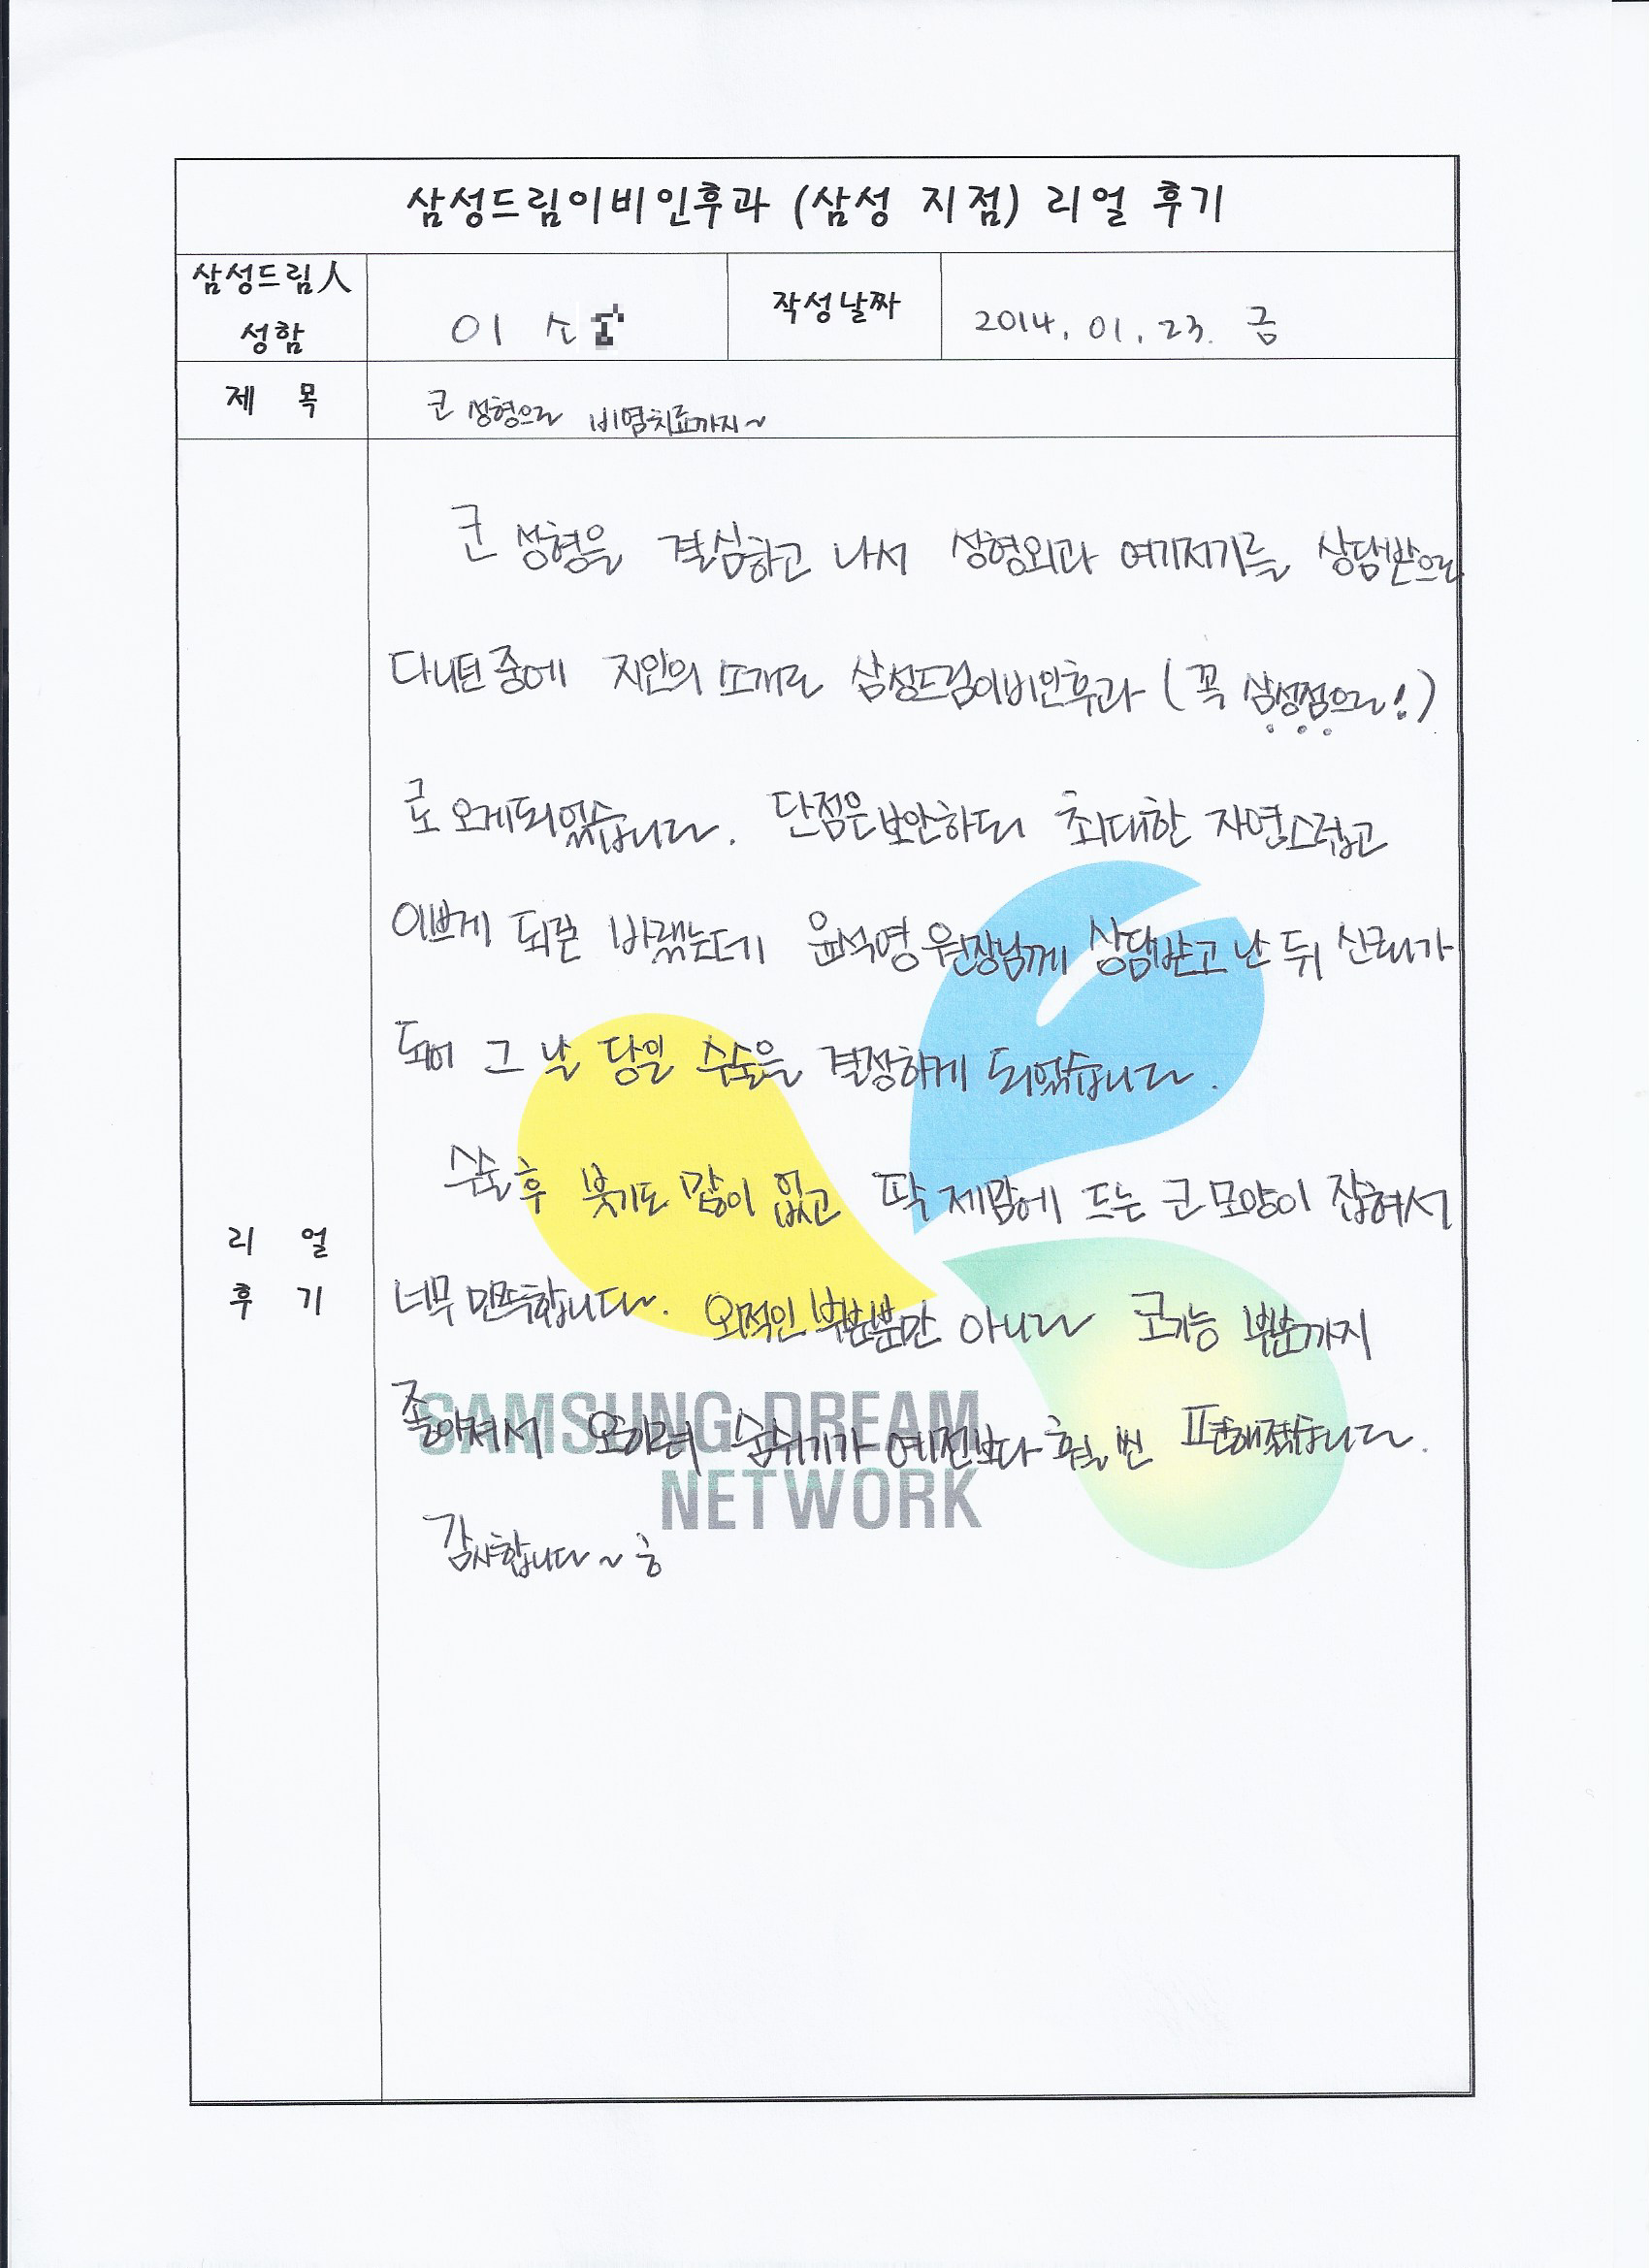 삼성드림이비인후과 (삼성 지점) 리얼 후기
삼성드림人
성함
이
작성날짜
2014. 01. 23. 금
제 목
코 성형으로 비염치료까지~
코 성형을 결심하고 나서 성형외과 여기저기를 상담받으러
다니던 중에 지인의 소개로 삼성드림이비인후과 (꼭 삼성점으로!)
로 오게되었습니다. 단점은 보안하되 최대한 자연스럽고
이쁘게 되길 바랬는데 윤석영 원장님께 상담받고 난 뒤 신뢰가
되어 그 날 당일 수술을 결정하게 되었습니다.
수술 후 붓기도 많이 없고 딱 제맘에 드는 코 모양이 잡혀서
너무 만족합니다. 외적인 부분뿐만 아니라 코기능 부분까지
좋아져서 오히려 숨쉬기가 예전보다 훨씬 편해졌습니다.
감사합니다~ ㅎ
리 얼
후 기
SAMSUNG DREAM
NETWORK